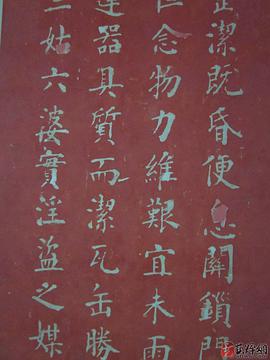 潔既昏便息關鎖門
恒念物力維艱宜未雨
連器具質而潔瓦缶勝
三姑六婆實淫盜之媒